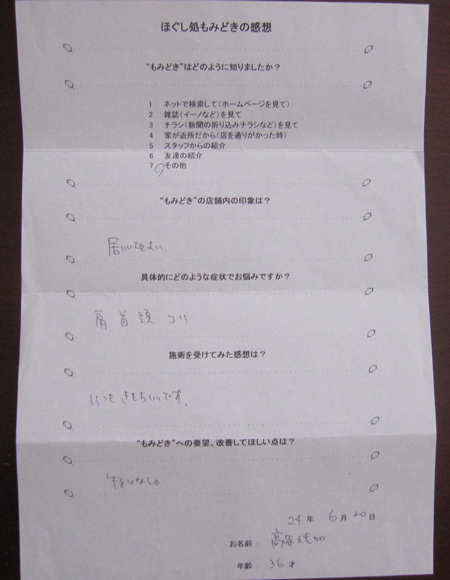 ほぐし処もみどきの感想
"もみどき"はどのように知りましたか？
1 ネットで検索して(ホームページを見て)
2 雑誌(イーノなど)を見て
3 チラシ(新聞の折り込みチラシなど)を見て
4 家が近所だから(店を通りがかった時)
5 スタッフからの紹介
6 友達の紹介
7 その他
"もみどき"の店舗内の印象は？
具体的にどのような症状でお悩みですか？
肩 首 頭 コリ
施術を受けてみた感想は？
いつもきもちいいです。
"もみどき"への要望、改善してほしい点は？
特になし
24 年 6 月 20 日
お名前：
年齢： 36 才